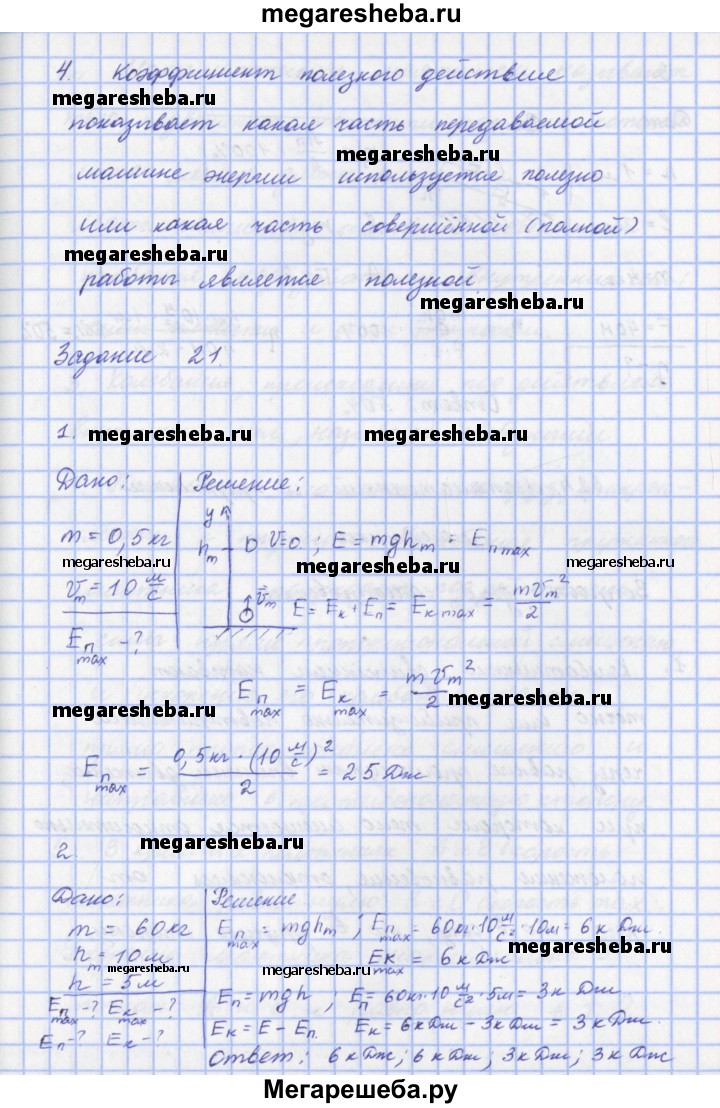 megaresheba.ru
4. Коэффициент полезного действия
megaresheba.ru
показывает какая часть передаваемой
megaresheba.ru
машине энергии используется полезно
или какая часть совершённой (полной)
megaresheba.ru
работы является полезной.
megaresheba.ru
Задание 21.
1. megaresheba.ru megaresheba.ru
Дано: Решение:
m = 0,5 кг
megaresheba.ru megaresheba.ru
v_m = 10 м/с
E_п max - ?
y h_m v=0. ; E = mgh_m = E_п max
v_m E = E_к + E_п = E_к max = mv_m²/2
E_п max = E_к max = mv_m²/2
megaresheba.ru megaresheba.ru
E_п max = 0,5 кг · (10 м/с)²/2 = 25 Дж
megaresheba.ru megaresheba.ru
2.
Дано: Решение
m = 60 кг
h_m = 10 м
megaresheba.ru
h = 5 м
E_п max - ? E_к max - ?
megaresheba.ru
E_п - ? E_к - ?
E_п max = mgh_m ; E_п max = 60 кг · 10 м/с² · 10 м = 6 кДж.
megaresheba.ru
E_к max = 6 кДж
megaresheba.ru
E_п = mgh , E_п = 60 кг · 10 м/с² · 5 м = 3 кДж.
E_к = E - E_п. E_к = 6 кДж - 3 кДж = 3 кДж.
Ответ: 6 кДж; 6 кДж; 3 кДж; 3 кДж
Мегарешеба.ру